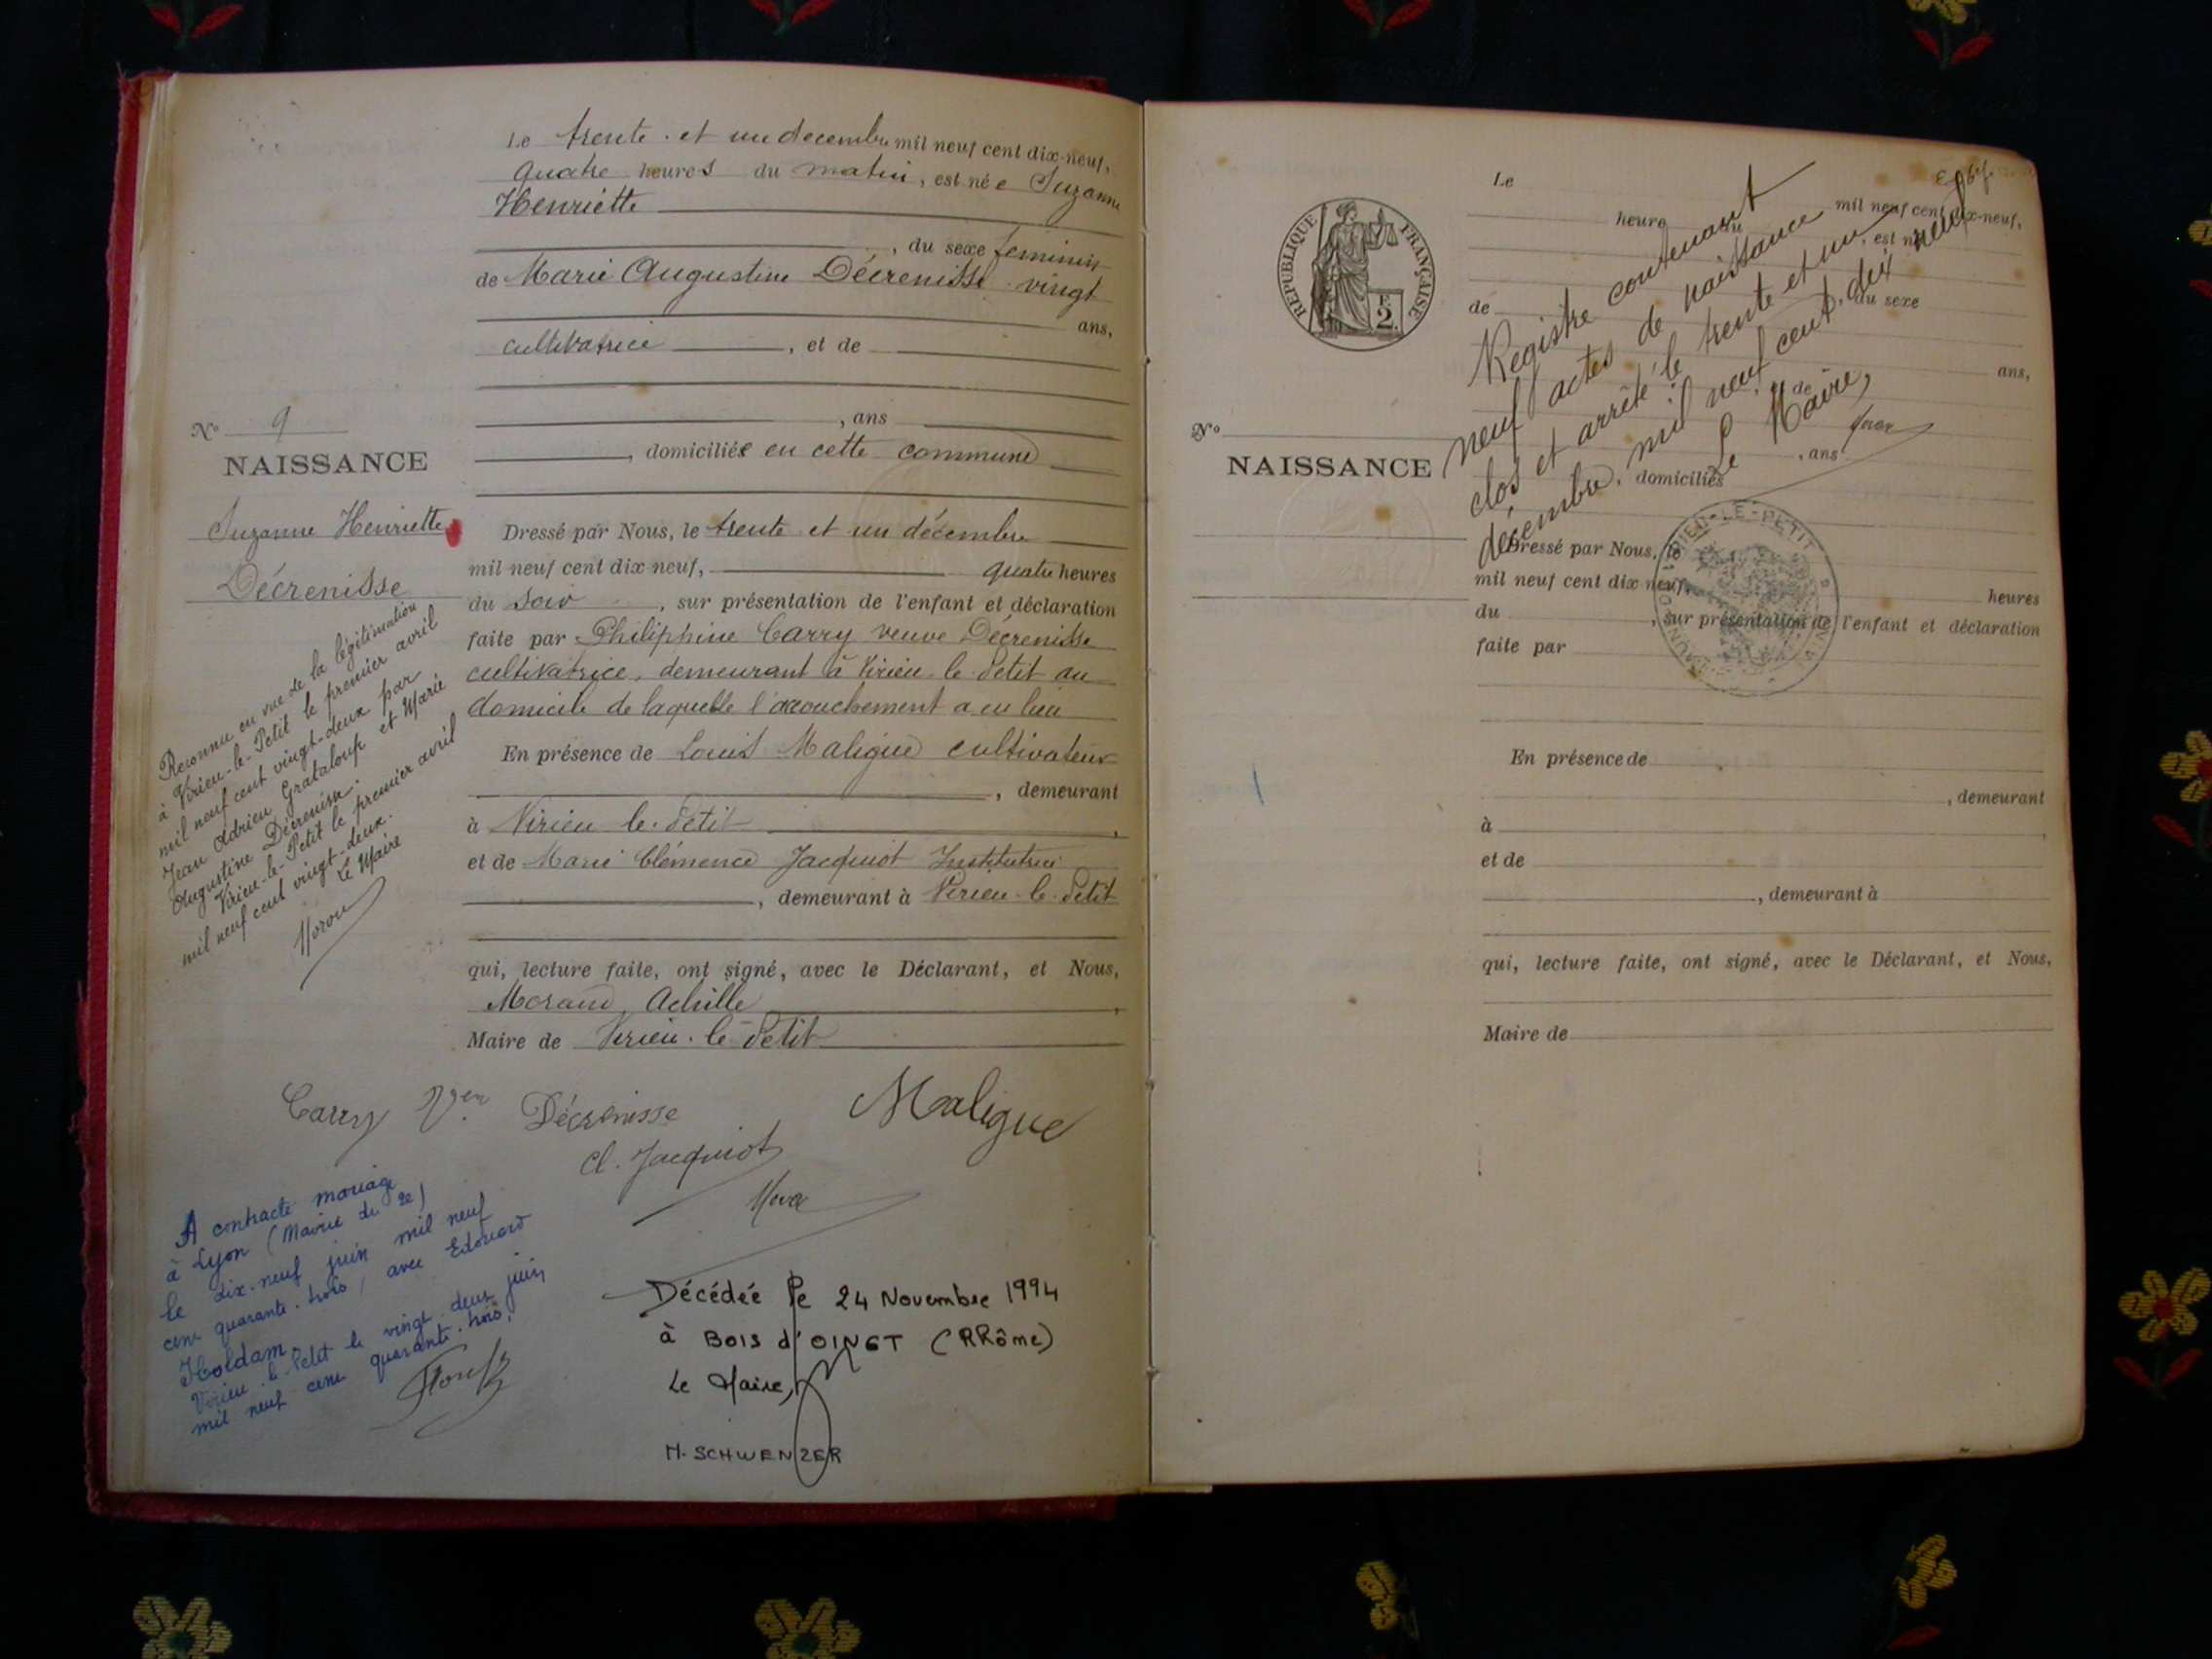 Le trente et un decembre mil neuf cent dix-neuf,
quatre heures du matin, est née Suzanne
Henriette
, du sexe feminin
de Marie Augustine Décrenisse vingt
ans,
cultivatrice, et de
, ans
, domiciliée en cette commune
No 9
NAISSANCE
Suzanne Henriette
Décrenisse
Dressé par Nous, le trente et un décembre
mil neuf cent dix-neuf, quatre heures
du soir, sur présentation de l'enfant et déclaration
faite par Philippine Carry veuve Décrenisse
cultivatrice, demeurant à Virieu-le-Petit au
domicile de laquelle l'accouchement a eu lieu
En présence de Louis Maligue cultivateur
, demeurant
à Virieu-le-Petit,
et de Marie Clémence Jacquiot Institutrice
, demeurant à Virieu-le-Petit
qui, lecture faite, ont signé, avec le Déclarant, et Nous,
Morand Achille,
Maire de Virieu-le-Petit
Reconnu en vue de la légitimation
à Virieu-le-Petit le premier avril
mil neuf cent vingt-deux par
Jean Adrien Grataloup et Marie
Augustine Décrenisse.
Virieu-le-Petit le premier avril
mil neuf cent vingt-deux.
Le Maire
Carry Vve Décrenisse
Maligue
Cl. Jacquiot
A contracté mariage
à Lyon (Mairie du 2e)
le dix-neuf juin mil neuf
cent quarante-trois, avec Edouard
Holdam.
Virieu-le-Petit le vingt-deux juin
mil neuf cent quarante-trois.
Décédée le 24 Novembre 1994
à BOIS d'OINGT (Rhône)
Le Maire,
M. SCHWENZER
REPUBLIQUE FRANÇAISE
2
Le
mil neuf cent dix-neuf,
heure du, est né
de
du sexe
ans,
et de
, ans
domiciliés
Registre contenant
neuf actes de naissance
clos et arrêté le trente et un
décembre mil neuf cent dix neuf
Le Maire,
No
NAISSANCE
VIRIEU-LE-PETIT
Dressé par Nous, le
mil neuf cent dix-neuf, heures
du, sur présentation de l'enfant et déclaration
faite par
En présence de
, demeurant
à,
et de
, demeurant à
qui, lecture faite, ont signé, avec le Déclarant, et Nous,
Maire de